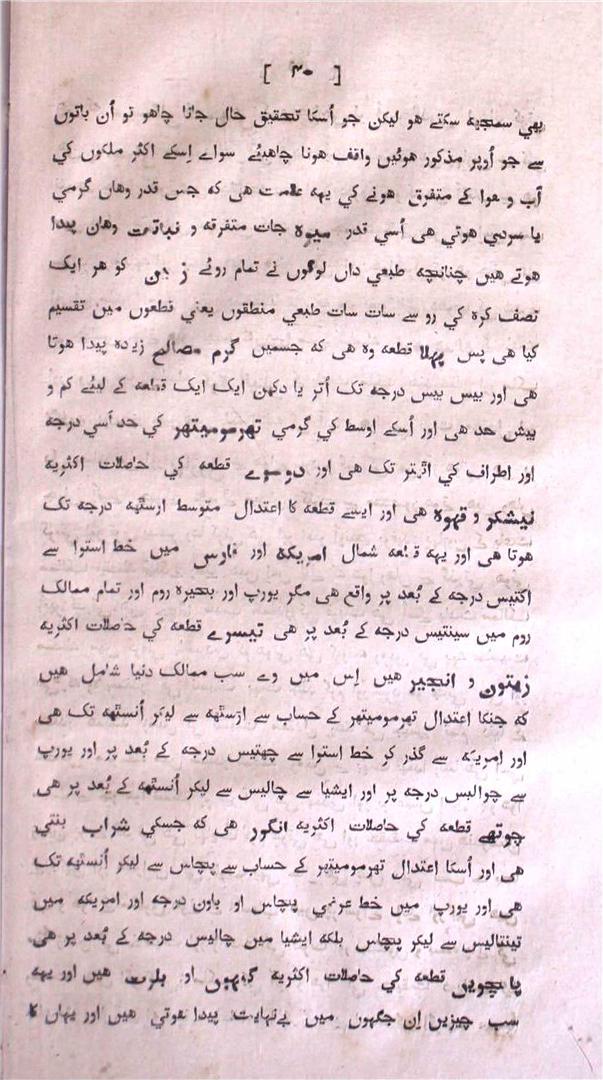 [ ۳۰ ]
بهي سمجهه سکتے هو ليکن جو اُسکا تحقيق حال جانا چاهو تو اُن باتوں
سے جو اُوپر مذکور هوئيں واقف هونا چاهيئے سواے اِسکے اکثر ملکوں کي
آب و هوا کے متفرق هونے کي يهه علامت هی که جس قدر وهاں گرمي
يا سردي هوتي هی اُسي قدر ميوه جات متفرقه و نباتات وهاں پيدا
هوتے هيں چنانچه طبعي داں لوگوں نے تمام روئے زمين کو هر ايک
نصف کره کي رو سے سات سات طبعي منطقوں يعني قطعوں ميں تقسيم
کيا هی پس پہلا قطعه وه هی که جسميں گرم مصالح زياده پيدا هوتا
هی اور بيس بيس درجه تک اُتر يا دکهن ايک ايک قطعه کے ليئے کم و
بيش حد هی اور اُسکے اوسط کي گرمي تهرموميتهر کي حد اسي درجه
اور اطراف کي اٹهتر تک هی اور دوسرے قطعه کي حاصلات اکثريه
نيشکر و قہوه هی اور ايسے قطعه کا اعتدال متوسط ارسٹهه درجه تک
هوتا هی اور يهه قطعه شمال امريکه اور فارس ميں خط استوا سے
اکتيس درجه کے بُعد پر واقع هی مگر يورپ اور بحيره روم اور تمام ممالک
روم ميں سينتيس درجه کے بُعد پر هی تيسرے قطعه کي حاصلات اکثريه
زيتون و انجير هيں اِس ميں وے سب ممالک دنيا شامل هيں
که جنکا اعتدال تهرموميتهر کے حساب سے ارسٹهه سے ليکر اُنسٹهه تک هی
اور امريکه سے گذر کر خط استوا سے چهتيس درجه کے بُعد پر اور يورپ
سے چواليس درجه پر اور ايشيا سے چاليس سے ليکر اُنسٹهه کے بُعد پر هی
چوتهے قطعه کي حاصلات اکثريه انگور هی که جسکي شراب بنتي
هی اور اُسکا اعتدال تهرموميتهر کے حساب سے پنچاس سے ليکر اُنسٹهه تک
هی اور يورپ ميں خط عرضي پنچاس او باون درجه اور امريکه ميں
تينتاليس سے ليکر پنچاس بلکه ايشيا ميں چاليس درجه کے بُعد پر هی
پانچويں قطعه کي حاصلات اکثريه گيہوں او بلوت هيں اور يهه
سب چيزيں اِن جگہوں ميں بےنہايت پيدا هوتي هيں اور يہاں کا